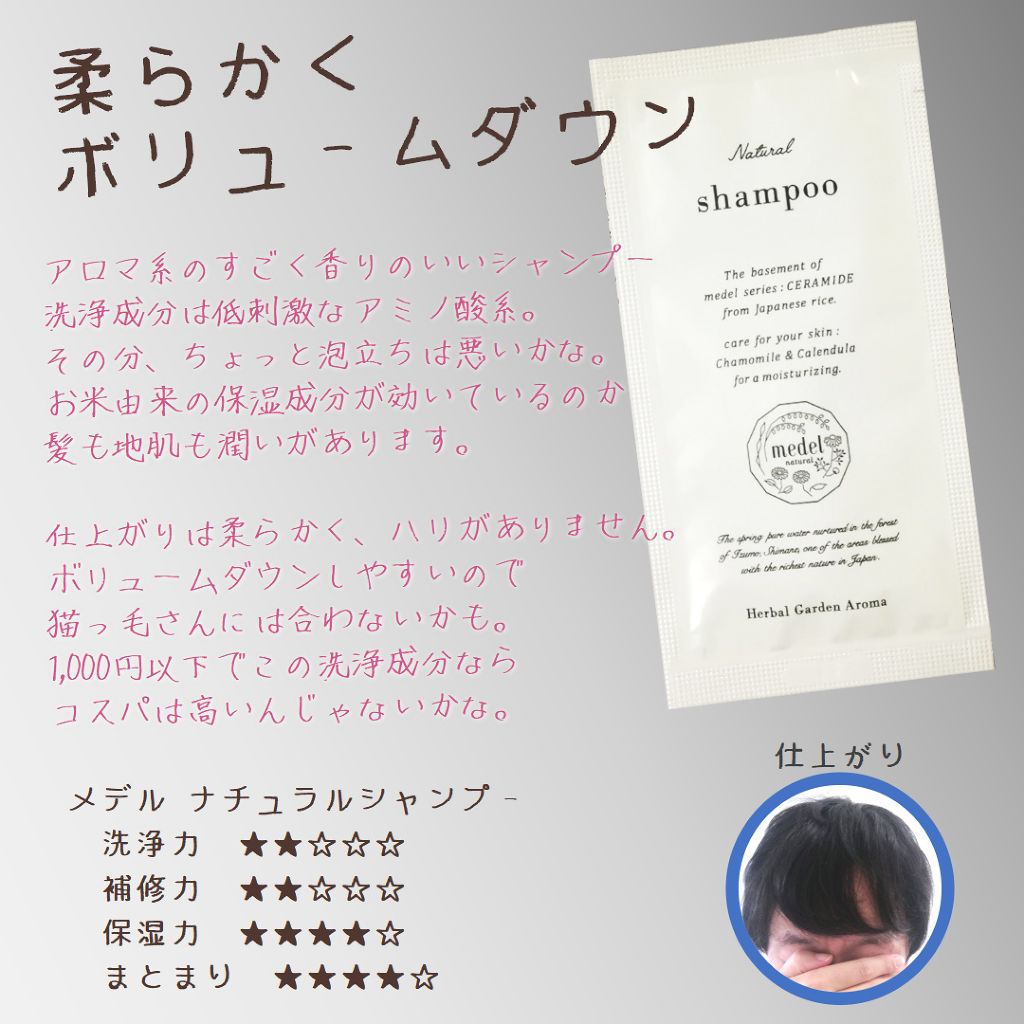 柔らかく
ボリュームダウン
アロマ系のすごく香りのいいシャンプー
洗浄成分は低刺激なアミノ酸系。
その分、ちょっと泡立ちは悪いかな。
お米由来の保湿成分が効いているのか
髪も地肌も潤いがあります。
仕上がりは柔らかく、ハリがありません。
ボリュームダウンしやすいので
猫っ毛さんには合わないかも。
1,000円以下でこの洗浄成分なら
コスパは高いんじゃないかな。
メデル ナチュラルシャンプー
洗浄力 ★★☆☆☆
補修力 ★★☆☆☆
保湿力 ★★★★☆
まとまり ★★★★☆
Natural
shampoo
The basement of
medel series : CERAMIDE
from Japanese rice.
care for your skin :
Chamomile & Calendula
for a moisturizing.
medel
natural
The spring pure water nurtured in the forest
of Izumo, Shimane, one of the areas blessed
with the richest nature in Japan.
Herbal Garden Aroma
仕上がり